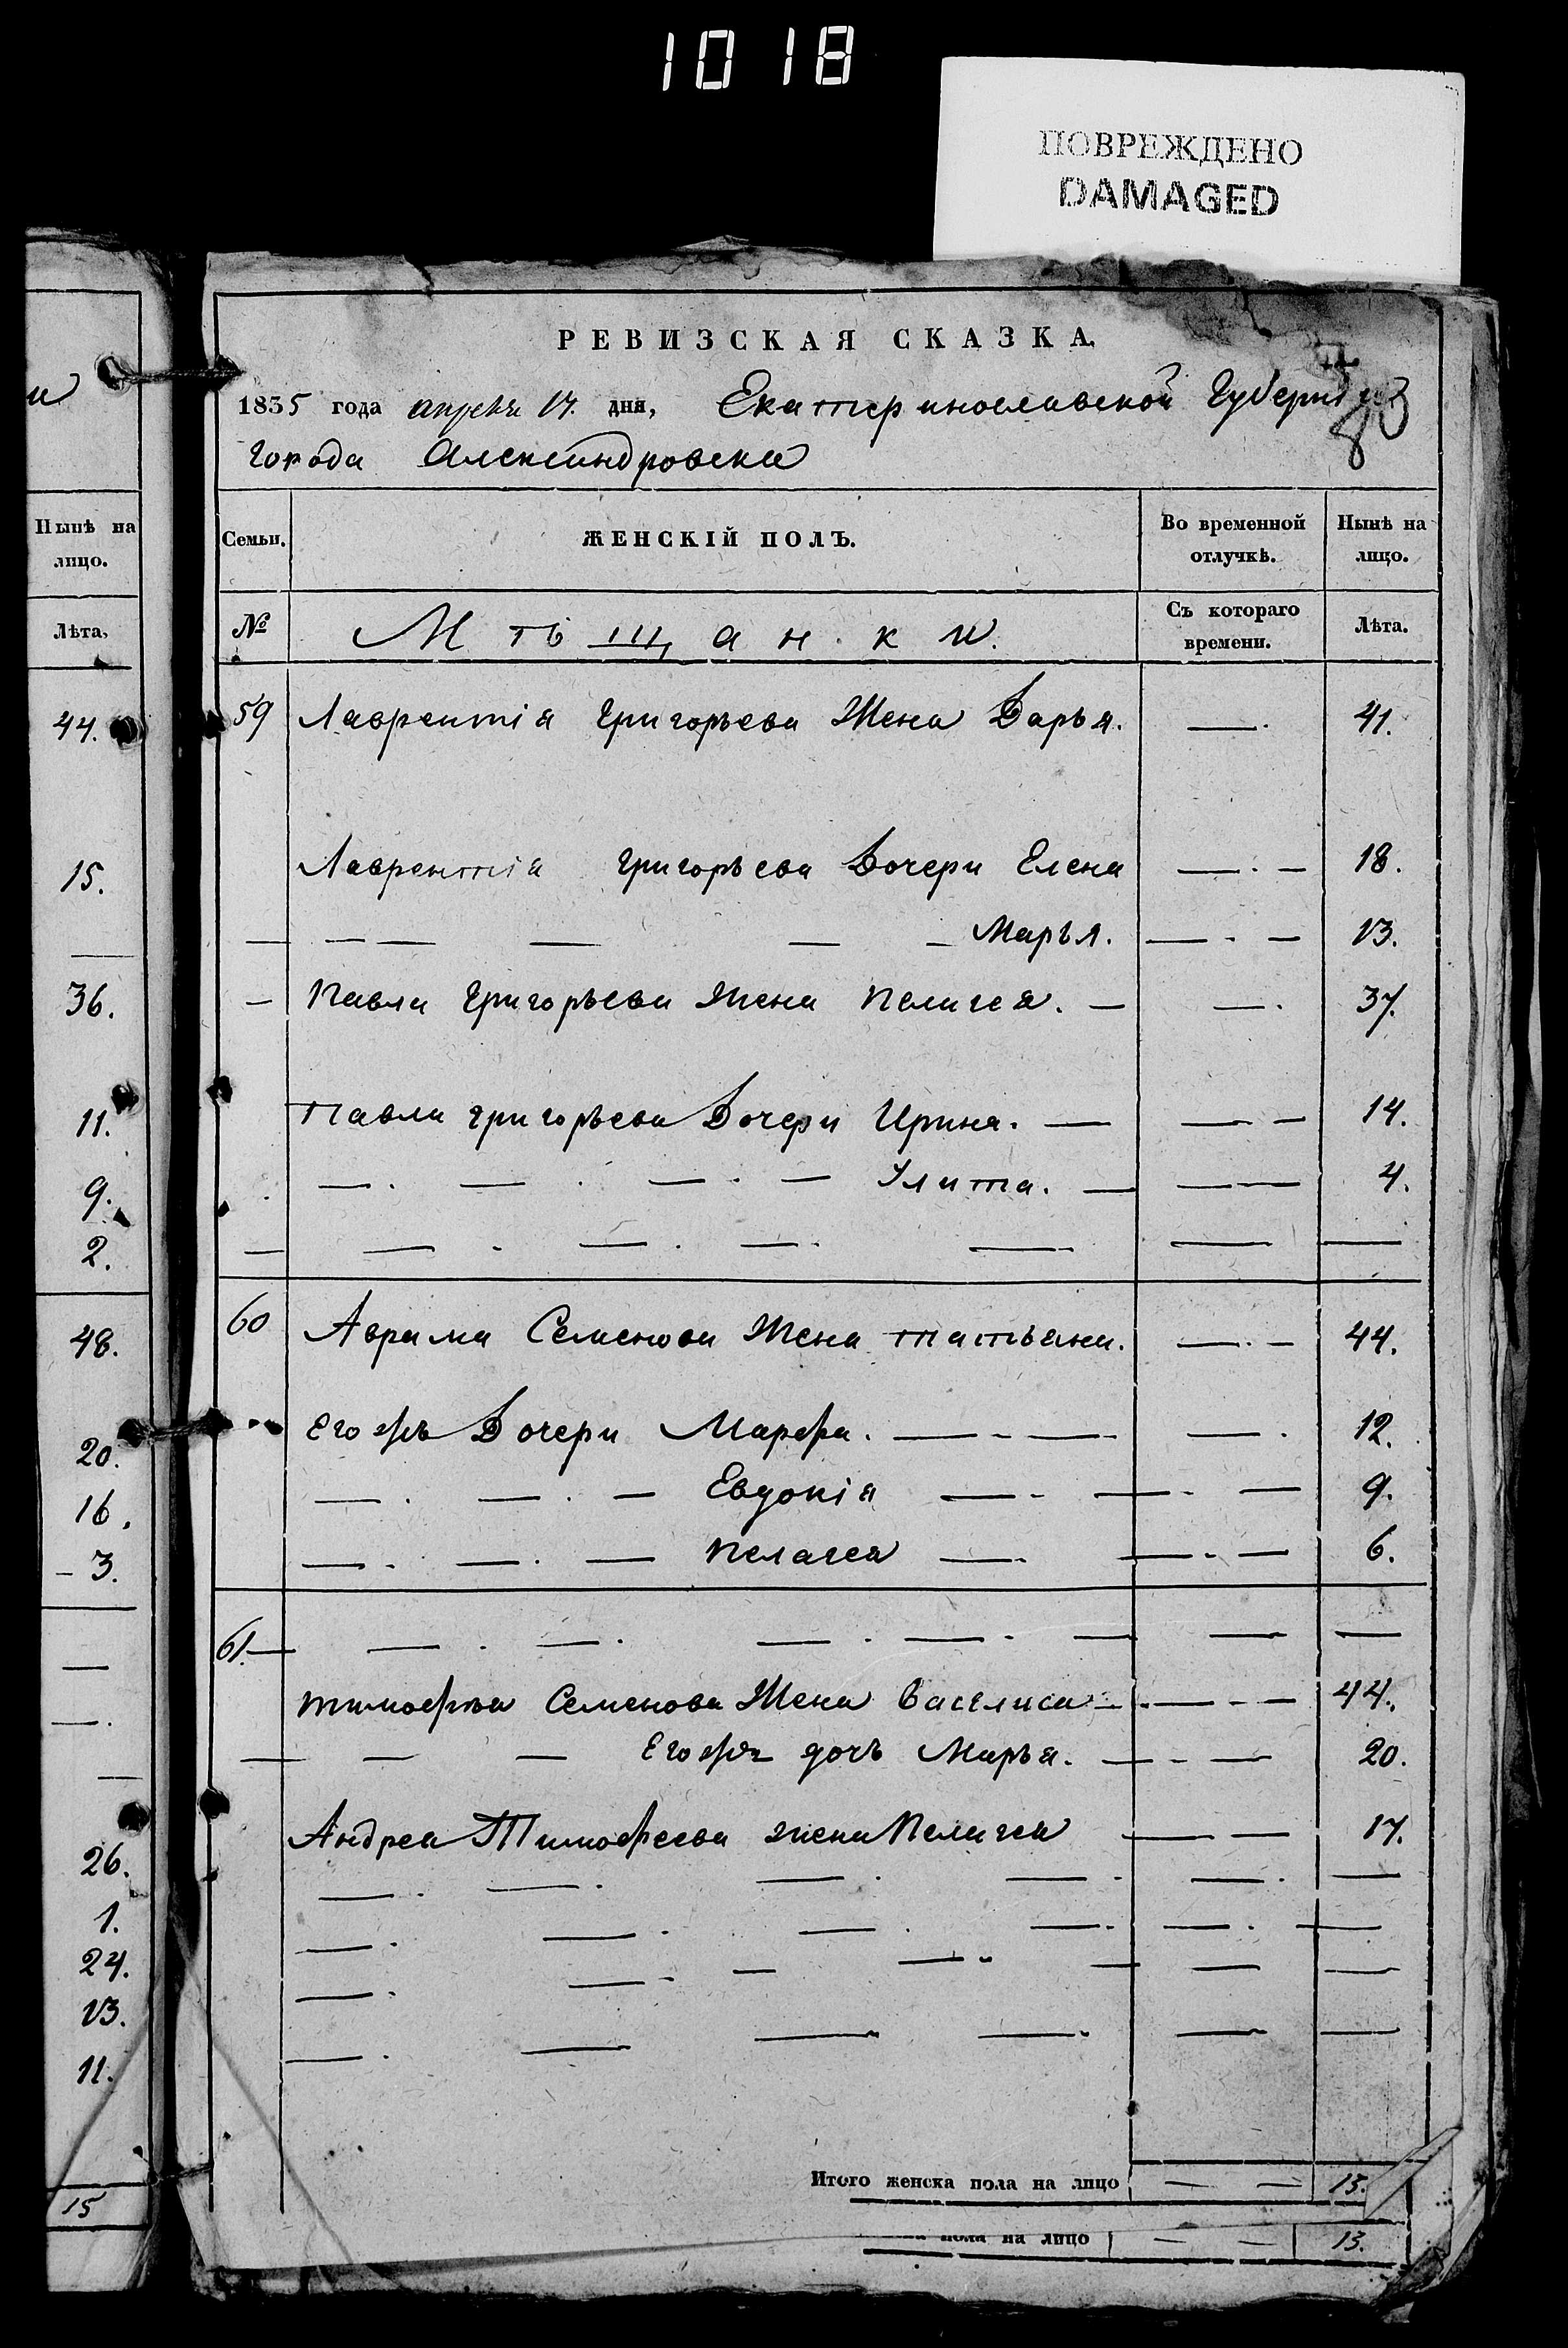 1018
ПОВРЕЖДЕНО
DAMAGED
РЕВИЗСКАЯ СКАЗКА.
1835 года апреля 17. дня, Екатеринославской Губерніи
города Александровска
Нынѣ на
лицо.
Лѣта,
44.
15.
36.
11.
9.
2.
48.
20.
16.
3.
26.
1.
24.
13.
11.
15
Семьи. ЖЕНСКІЙ ПОЛЪ. Во временной отлучкѣ. Нынѣ на лицо.
№ Мѣщанки. Съ котораго времени. Лѣта.
59 Лаврентія Григорьева Жена Дарья. — 41.
Лаврентія Григорьева Дочери Елена — 18.
— — — — — Марья. — 13.
— Павла Григорьева жена Пелагея. — — 37.
Павла Григорьева Дочери Ирина. — — 14.
— — — — Улита. — — 4.
— — — — — — —
60 Аврама Семенова Жена Татьяна. — 44.
Его жъ Дочери Марфа. — — — 12.
— — — Евдокія — — — 9.
— — — Пелагея — — — 6.
61. — — — — — — — —
Тимофѣя Семенова Жена Василиса — — 44.
— — — Его жъ дочь Марья. — — 20.
Андрея Тимофеева жена Пелагея — — 17.
— — — — — —
— — — — — —
— — — — — — —
— — — — — —
Итого женска пола на лицо — — 13.
пола на лицо — — 13.